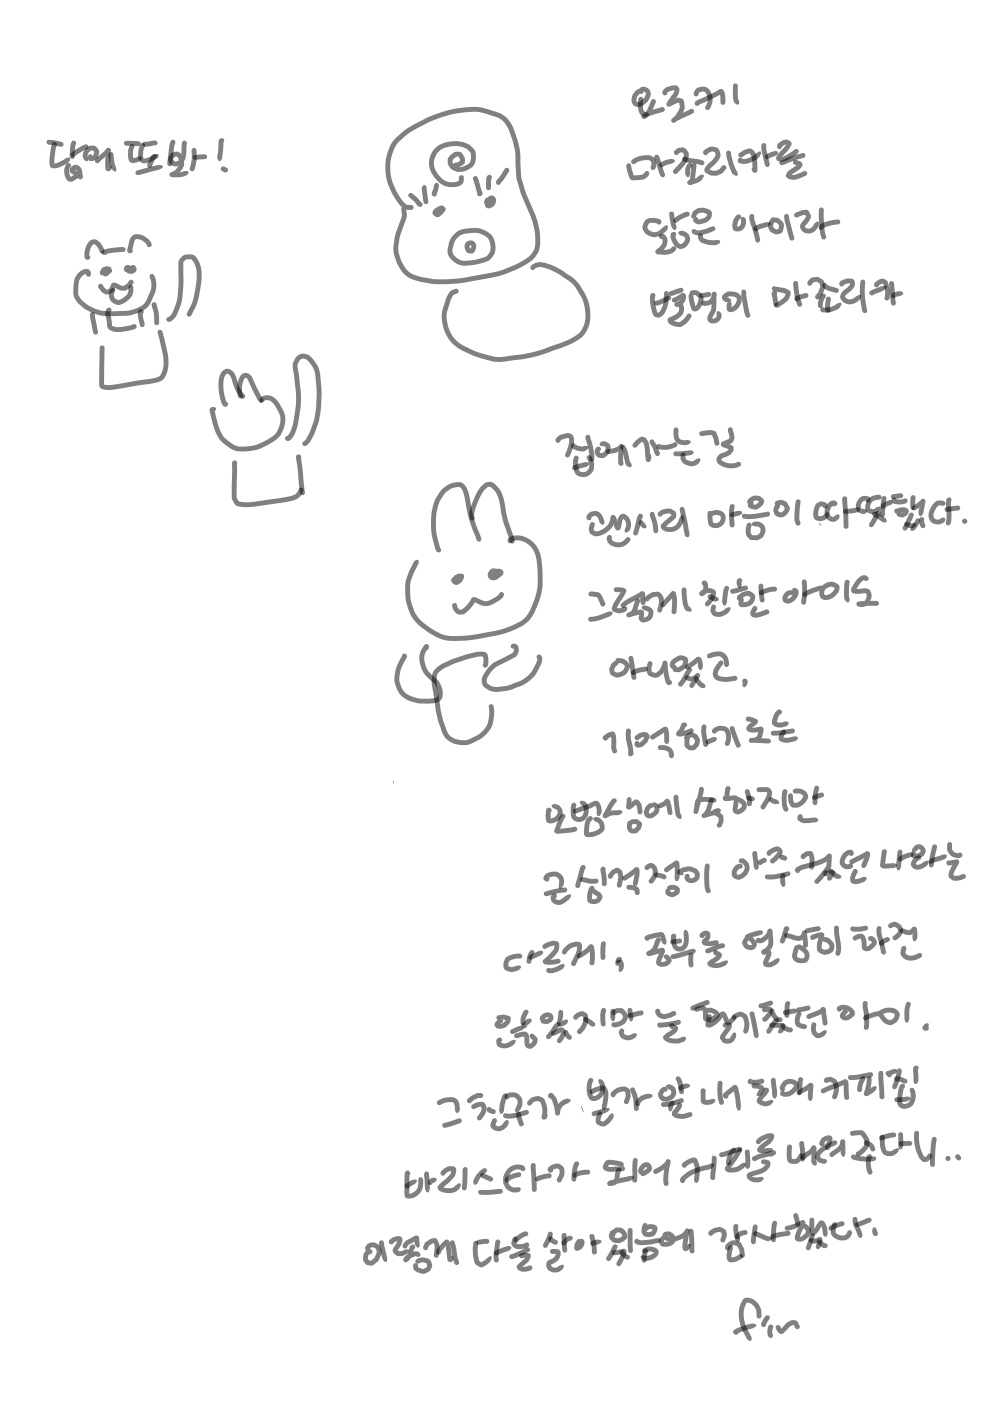 담에 또봐!
요로케
마죠리카를
닮은 아이라
별명이 마죠리카
집에가는길
괜시리 마음이 따땃했다.
그렇게 친한아이도
아니었고,
기억하기로는
모범생에 속하지만
근심걱정이 아주 컸던 나와는
다르게, 공부를 열심히 하진
않았지만 늘 활기찼던 아이.
그친구가 본가 앞 내 최애 커피집
바리스타가 되어 커피를 내려주다니..
이렇게 다들 살아있음에 감사했다.
fin